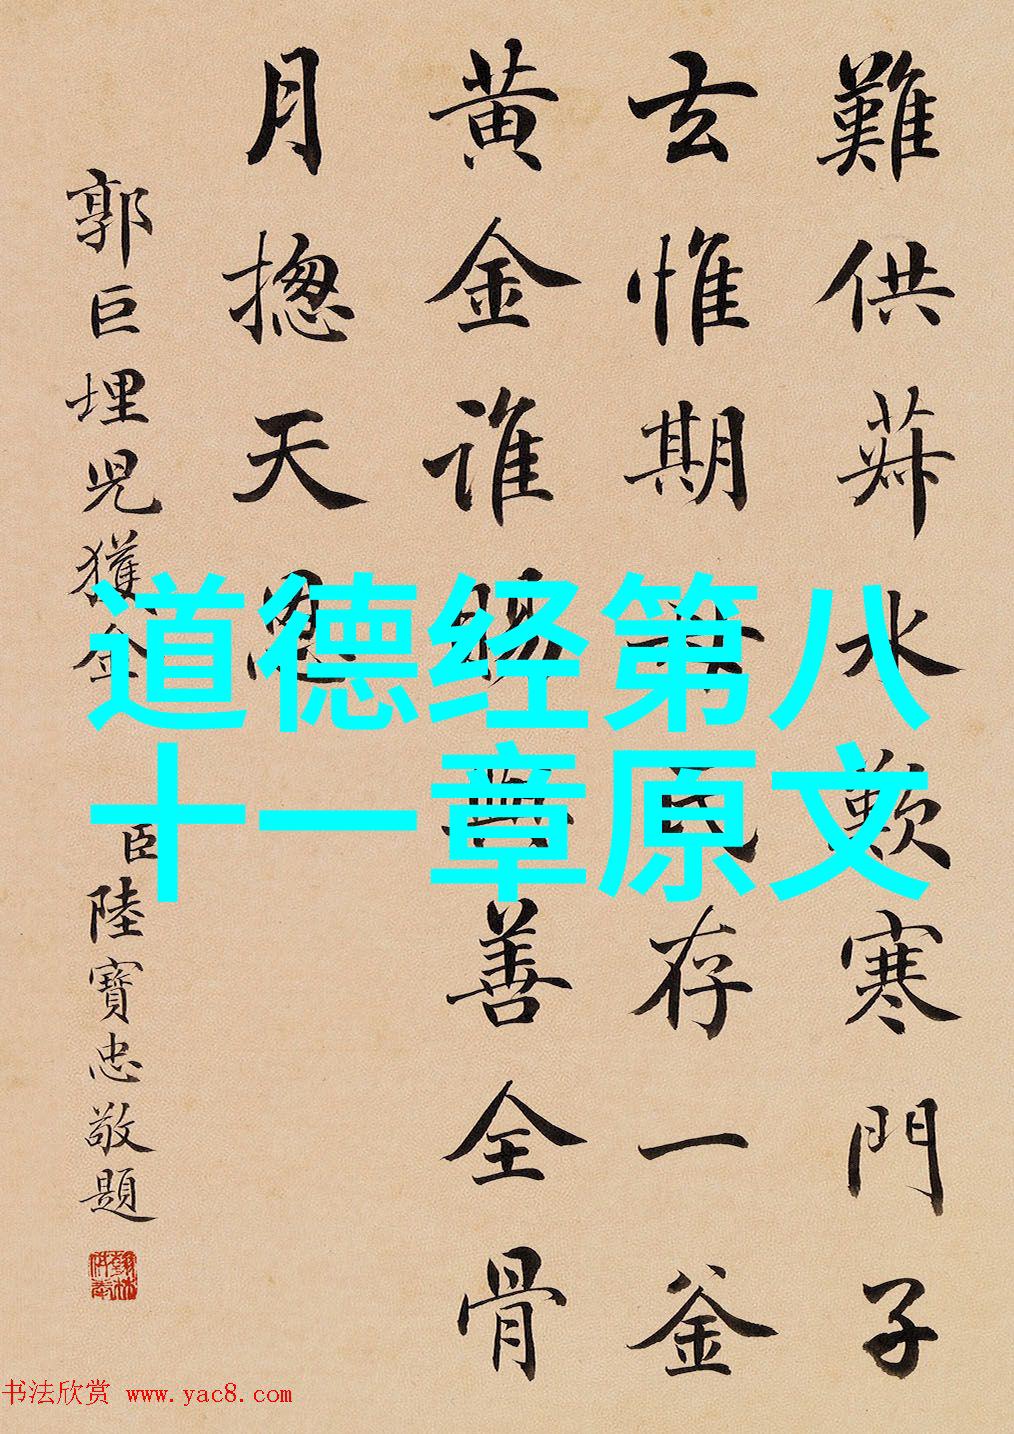 難供菽水歎寒門子
玄惟期母氏存一釜
黄金谁賜與善全骨
月揔天恩
郭巨埋児獲金
臣陸寶忠敬題
道德经第八
十一章原文
书法欣赏 www.yac8.com